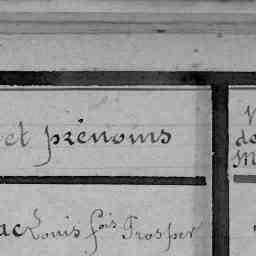 et prénoms
de
Louis fois Prosper